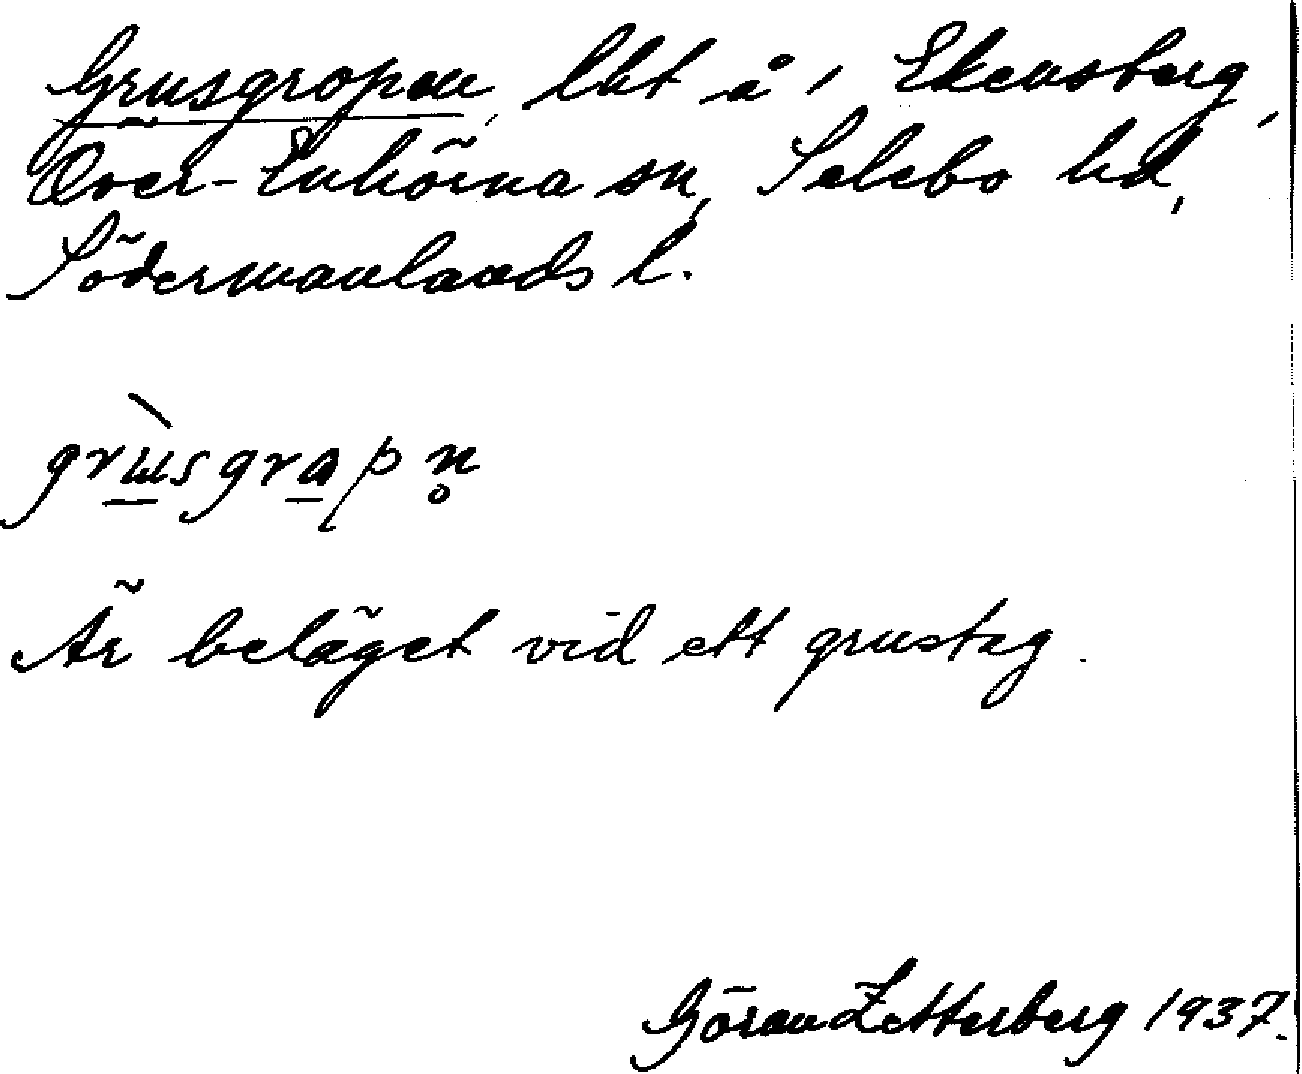 Grusgropen, lht å, Ekensberg,
Över-Enhörna sn, Selebo hd,
Södermanlands l.
grùsgrapn̥
Är beläget vid ett grustag.
Göran Zetterberg 1937.